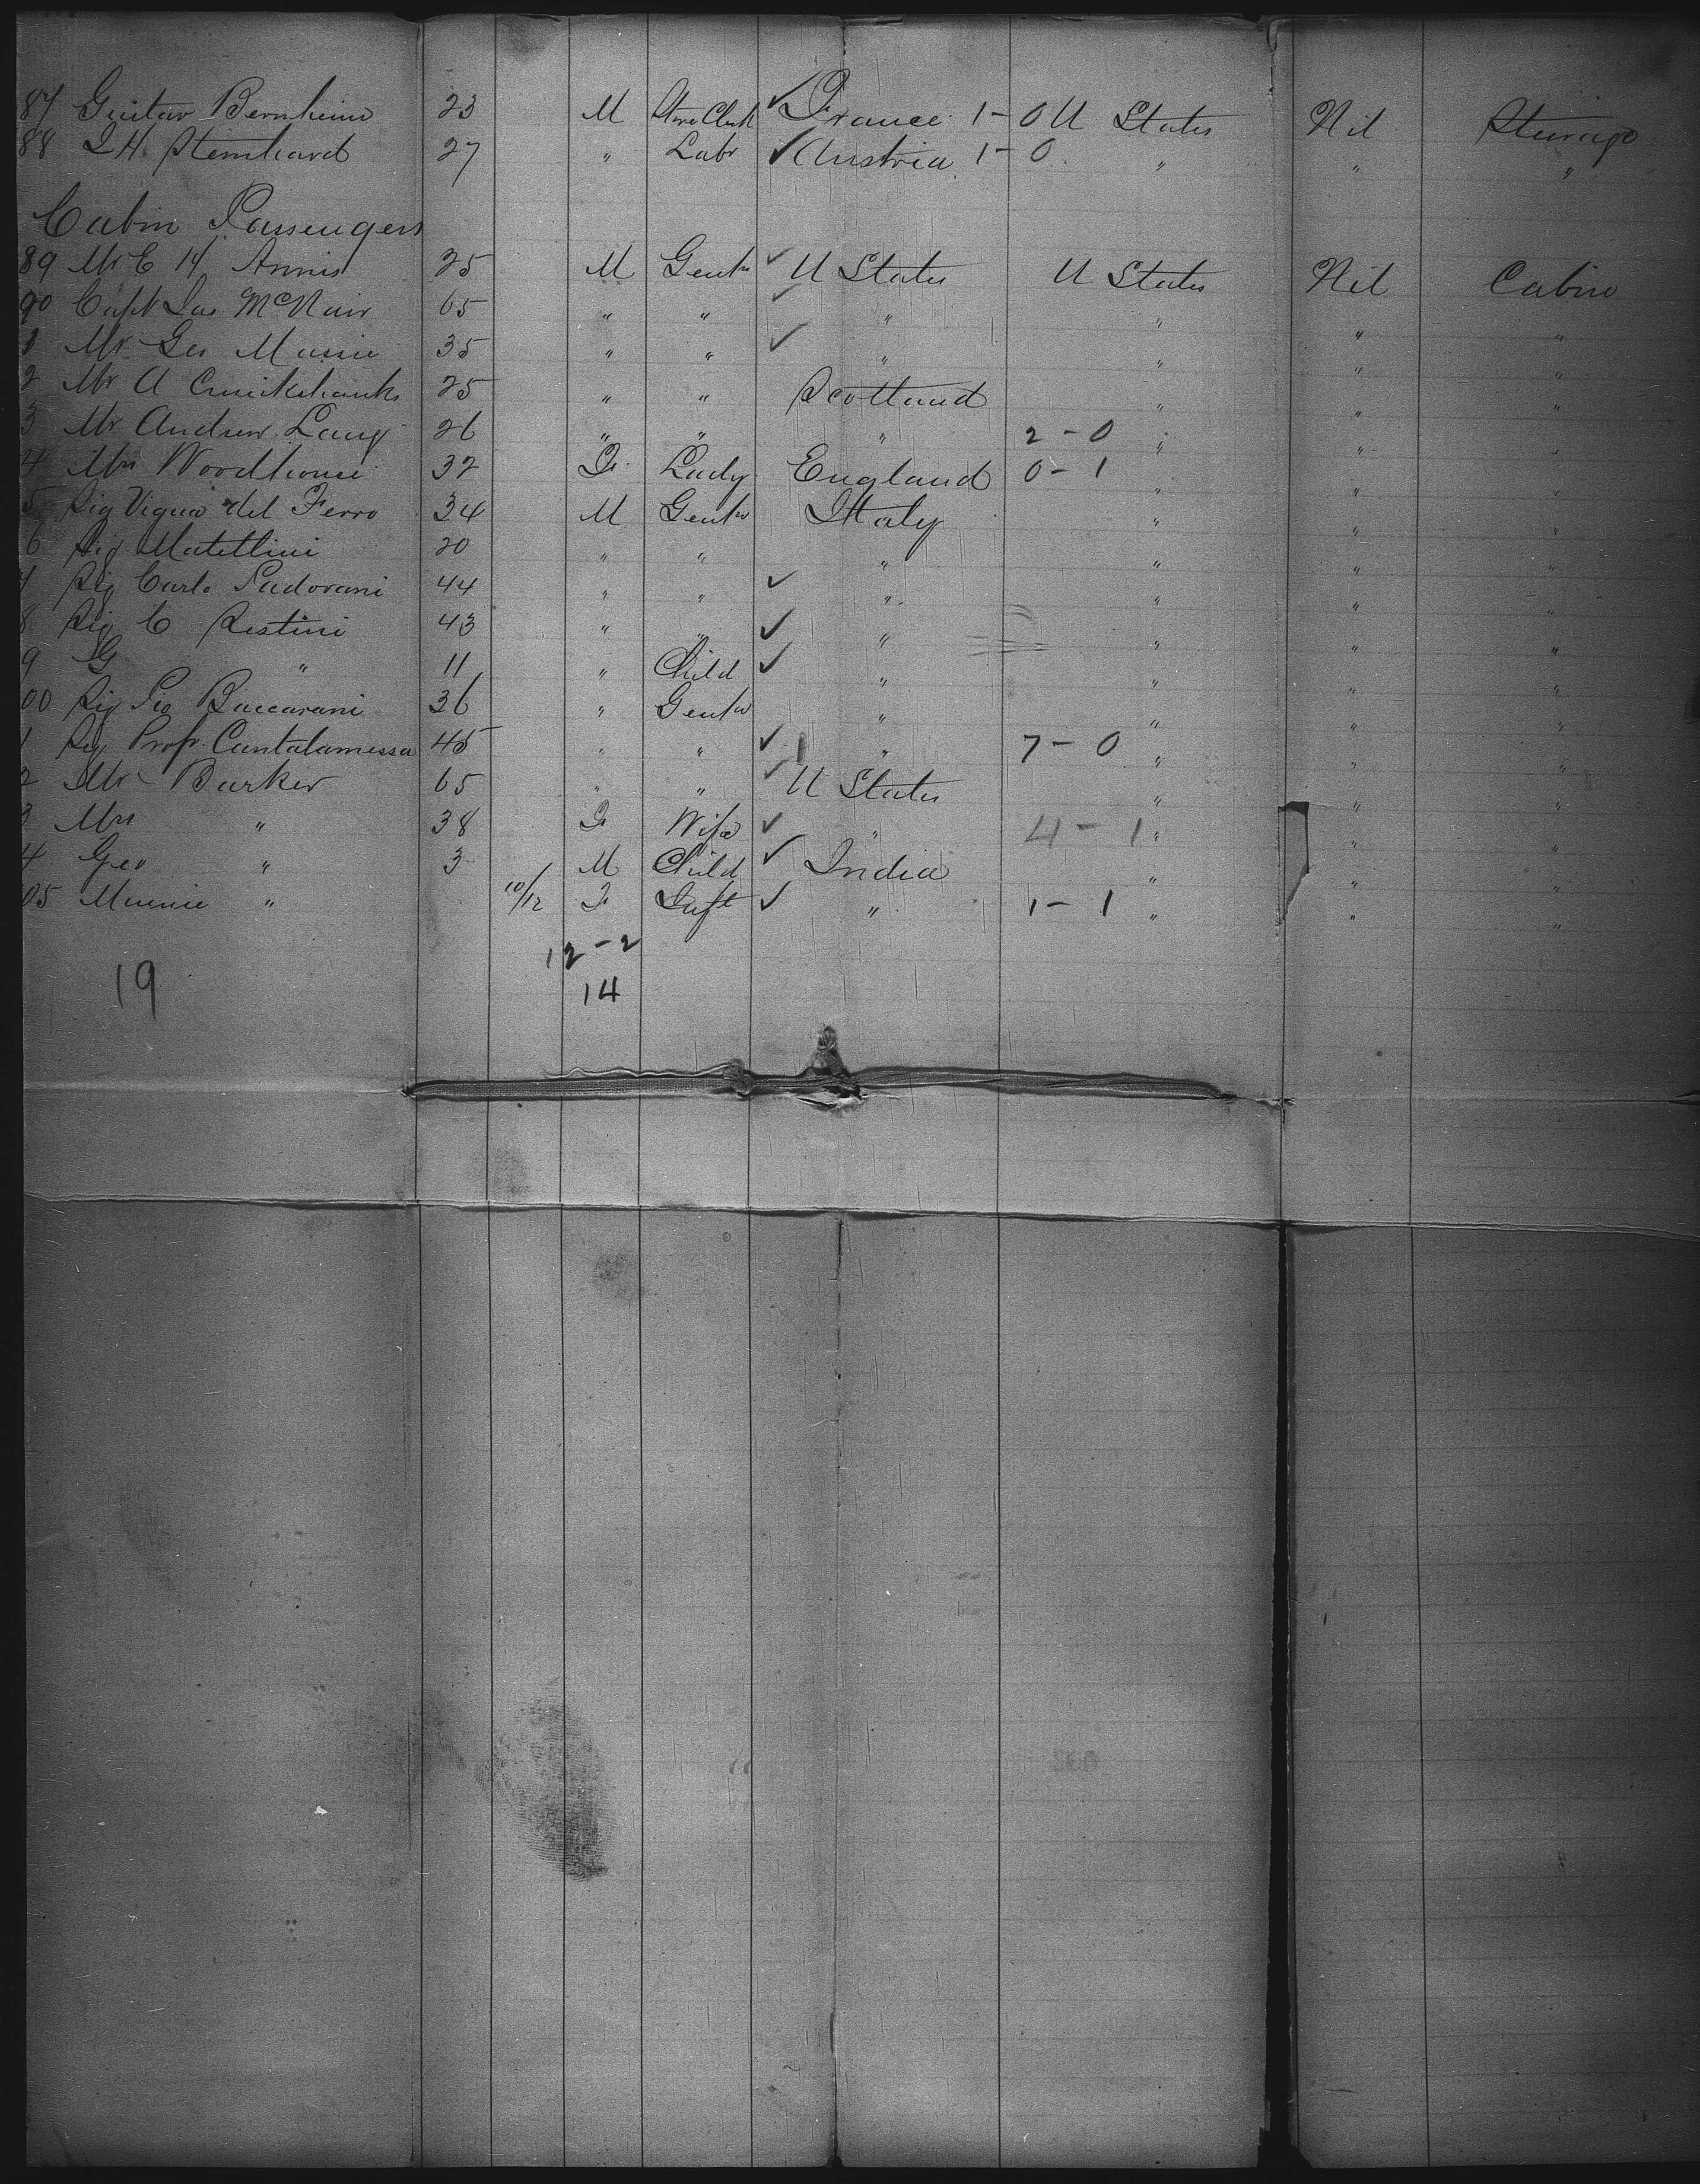 87 Gustav Bernheim 23 M Store Clerk ✓ France 1-0 U States Nil Steerage
88 I H Sternhard 27 " Labr ✓ Austria 1-0 " " "
Cabin Passengers
89 Mr E H Annis 25 M Gentn ✓ U States U States Nil Cabin
90 Capt Jas McNair 65 " " ✓ " " " "
1 Mr Geo Massie 35 " " ✓ " " " "
2 Mr A Cruickshanks 25 " " Scotland " " "
3 Mr Andrew Lang 26 " " " 2-0 " " "
4 Mrs Woodhouse 32 F Lady England 0-1 " " "
5 Sig Vigna del Ferro 34 M Gentn Italy " " "
6 Sig Matellini 20 " " " " " "
7 Sig Carlo Padovani 44 " " ✓ " " " "
8 Sig C Sestini 43 " " ✓ " " " "
9 G " 11 " Child ✓ " " " "
00 Sig Pio Baccarani 36 " Gentn " " " "
1 Sig Prof. Cantalamessa 45 " " ✓ " 7-0 " " "
2 Mr Barker 65 " " ✓ U States " " "
3 Mrs " 38 F Wife ✓ " 4-1 " " "
4 Geo " 3 M Child ✓ India " " "
05 Minnie " 10/12 F Inft ✓ " 1-1 " " "
12-2
19
14